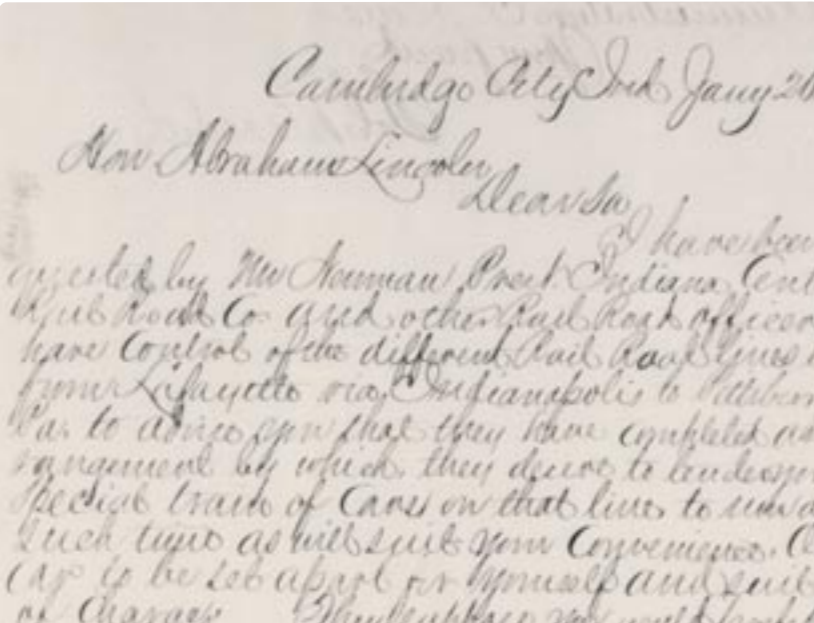 Cambridge City Ind Jany 26
Hon Abraham Lincoln
Dear Sir
I have been
quested by Mr Newman Prest Indiana Cent
Rail Road Co and other Rail Road officers
have Control of the different Rail Road lines
from Lafayette via Indianapolis to Pittsburg
Pa. to advise you that they have completed an
rangement by which they desire to tender you
special train of Cars on that line to run a
such time as will suit your Convenience. A
Car to be set apart for yourself and suit
of Charge